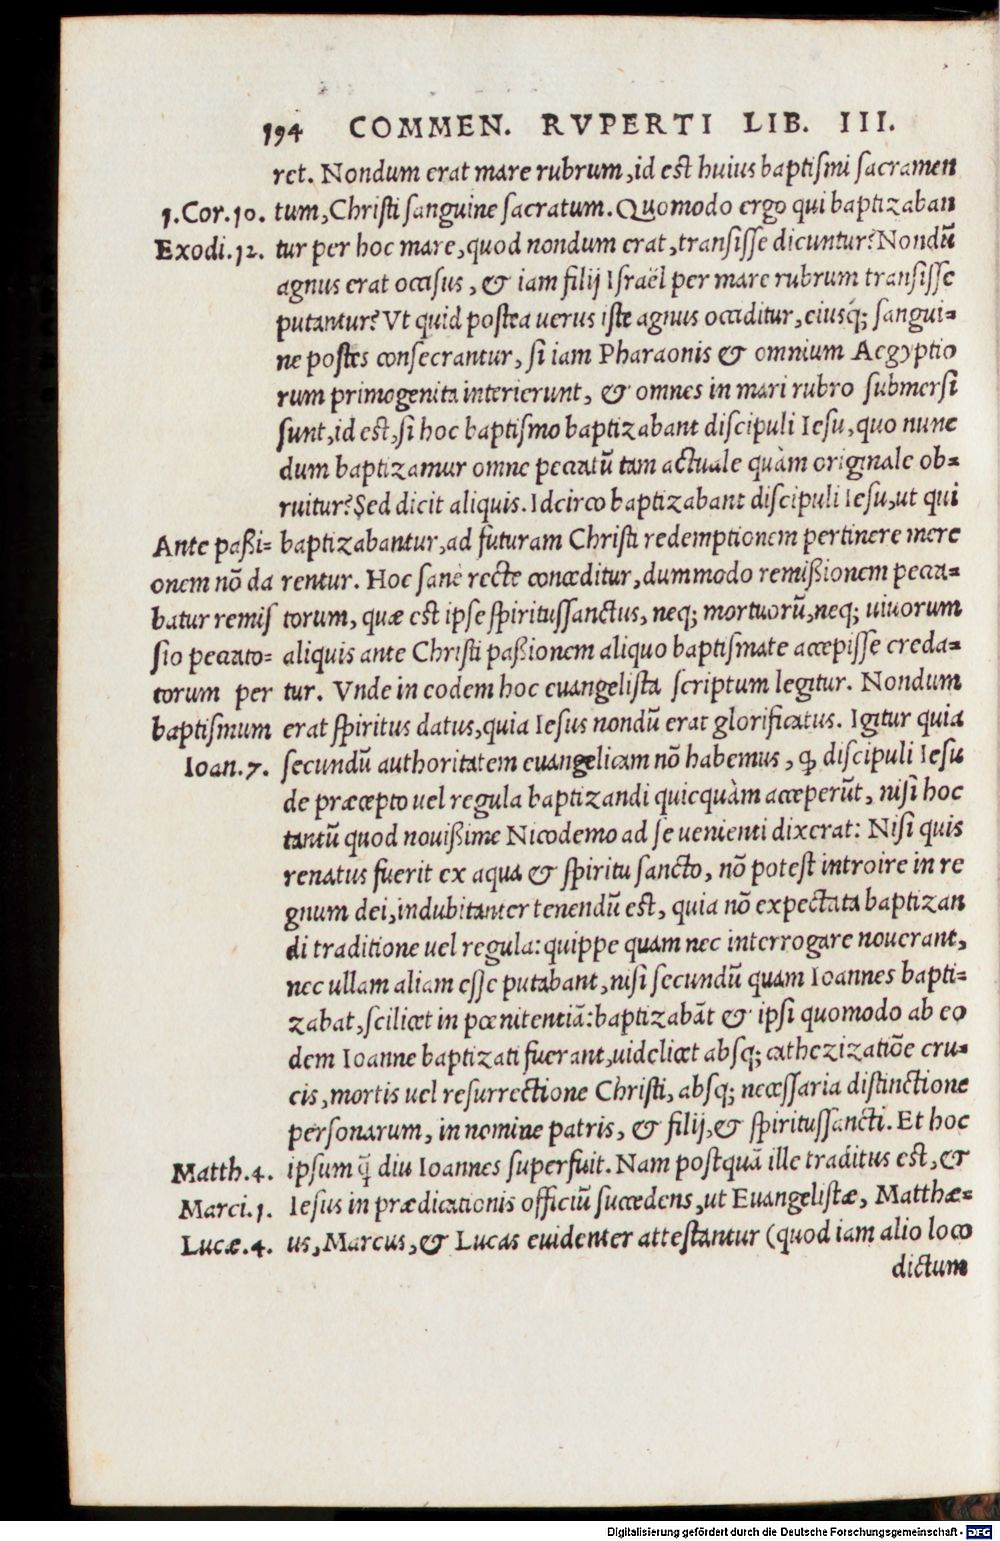 194 COMMEN. RVPERTI LIB. III.
ret. Nondum erat mare rubrum, id est huius baptismi sacramen
1. Cor. 10. tum, Christi sanguine sacratum. Quomodo ergo qui baptizaban
Exodi. 12. tur per hoc mare, quod nondum erat, transisse dicuntur? Nondū
agnus erat occisus, & iam filij Israël per mare rubrum transisse
putantur? Vt quid postea uerus iste agnus occiditur, eiusq́; sangui-
ne postes consecrantur, si iam Pharaonis & omnium Aegyptio
rum primogenita interierunt, & omnes in mari rubro submersi
sunt, id est, si hoc baptismo baptizabant discipuli Iesu, quo nunc
dum baptizamur omne peccatū tam actuale quàm originale ob-
ruitur? Sed dicit aliquis. Idcirco baptizabant discipuli Iesu, ut qui
Ante paßi- baptizabantur, ad futuram Christi redemptionem pertinere mere
onem nō da rentur. Hoc sanè recte conceditur, dummodo remißionem pecca-
batur remis torum, quæ est ipse spiritussanctus, neq; mortuorū, neq; uiuorum
sio peccato- aliquis ante Christi paßionem aliquo baptismate accepisse creda-
torum per tur. Vnde in eodem hoc euangelista scriptum legitur. Nondum
baptismum erat spiritus datus, quia Iesus nondū erat glorificatus. Igitur quia
Ioan. 7. secundū authoritatem euangelicam nō habemus, ꝙ discipuli Iesu
de præcepto uel regula baptizandi quicquàm acceperūt, nisi hoc
tantū quod nouißime Nicodemo ad se uenienti dixerat: Nisi quis
renatus fuerit ex aqua & spiritu sancto, nō potest introire in re
gnum dei, indubitanter tenendū est, quia nō expectata baptizan
di traditione uel regula: quippe quam nec interrogare nouerant,
nec ullam aliam esse putabant, nisi secundū quam Ioannes bapti-
zabat, scilicet in pœnitentiā: baptizabāt & ipsi quomodo ab eo
dem Ioanne baptizati fuerant, uidelicet absq; cathezizatiōe cru-
cis, mortis uel resurrectione Christi, absq; necessaria distinctione
personarum, in nomine patris, & filij, & spiritussancti. Et hoc
Matth. 4. ipsum q̄ diu Ioannes superfuit. Nam postquā ille traditus est, &
Marci. 1. Iesus in prædicationis officiū succedens, ut Euangelistæ, Matthæ-
Lucæ. 4. us, Marcus, & Lucas euidenter attestantur (quod iam alio loco
dictum
Digitalisierung gefördert durch die Deutsche Forschungsgemeinschaft - DFG